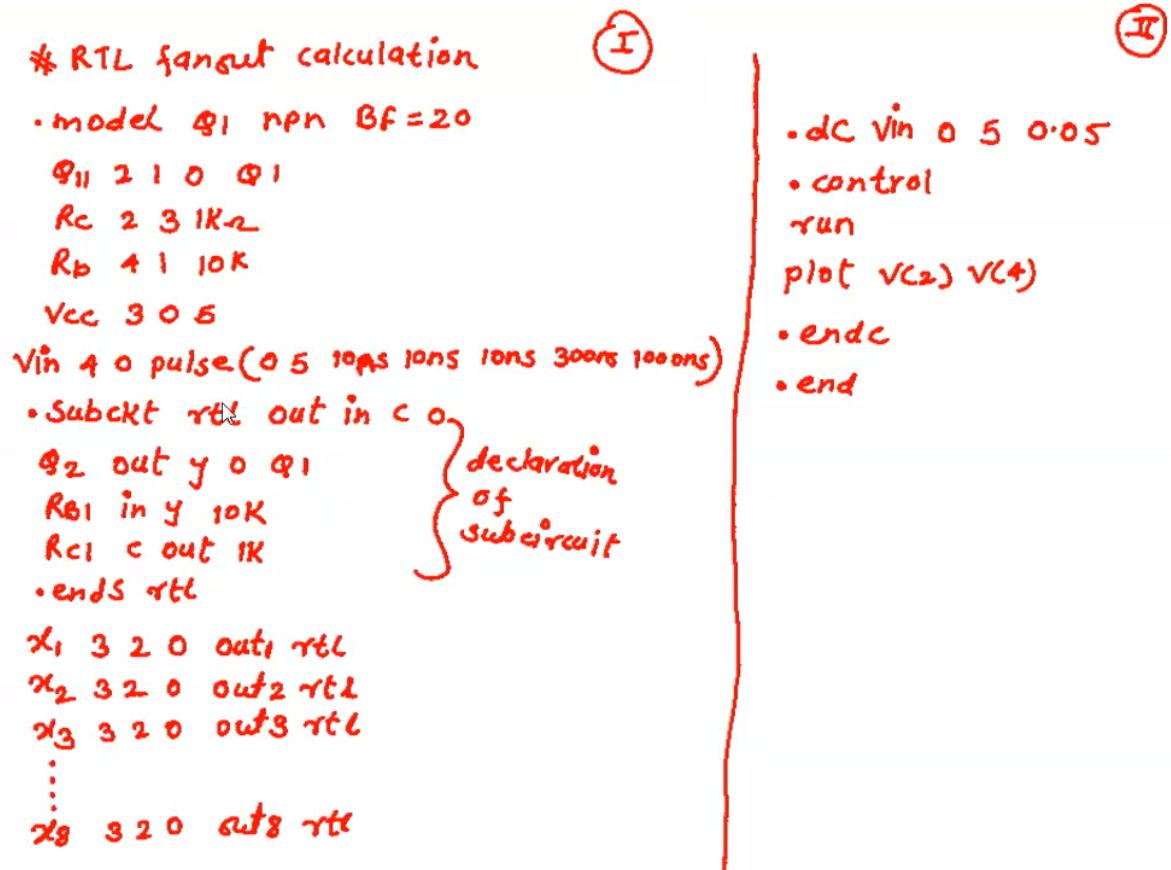 I
* RTL fanout calculation
.model Q1 npn Bf=20
Q11 2 1 0 Q1
Rc 2 3 1KΩ
Rb 4 1 10K
Vcc 3 0 5
Vin 4 0 pulse(0 5 10ns 10ns 10ns 300ns 1000ns)
.subckt rtl out in c 0
Q2 out y 0 Q1
RB1 in y 10K
Rc1 c out 1K
.ends rtl
declaration
of
subcircuit
x1 3 2 0 out1 rtl
x2 3 2 0 out2 rtl
x3 3 2 0 out3 rtl
x8 3 2 0 out8 rtl
II
.dc Vin 0 5 0.05
.control
run
plot V(2) V(4)
.endc
.end